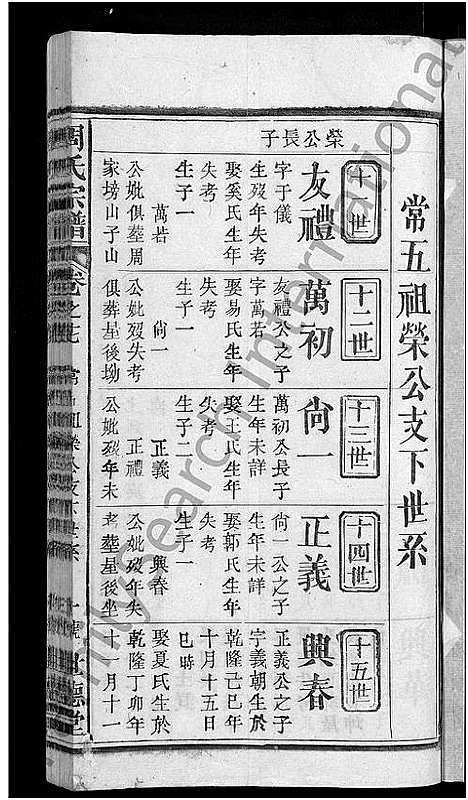 常五祖榮公支下世系
榮公長子
十一世
友禮
字于儀
生歿年失考
娶奚氏生年
失考
生子一
萬若
公妣俱塟周
家塝山子山
十二世
萬初
友禮公之子
字萬若
娶易氏生年
失考
生子一
尙一
公妣歿失考
俱葬星後坳
十三世
尙一
萬初公長子
生年未詳
娶王氏生年
失考
生子二
正義
正禮
公妣歿年未
十四世
正義
尙一公之子
生年未詳
娶郭氏生年
失考
生子一
興春
公妣歿年失
考塟星後坐
十五世
興春
正義公之子
字義朝生於
乾隆己巳年
十月十五日
巳時
娶夏氏生於
乾隆丁卯年
十一月十一
周氏宗譜
卷之
常五祖榮公支下世系
世德堂
Search International